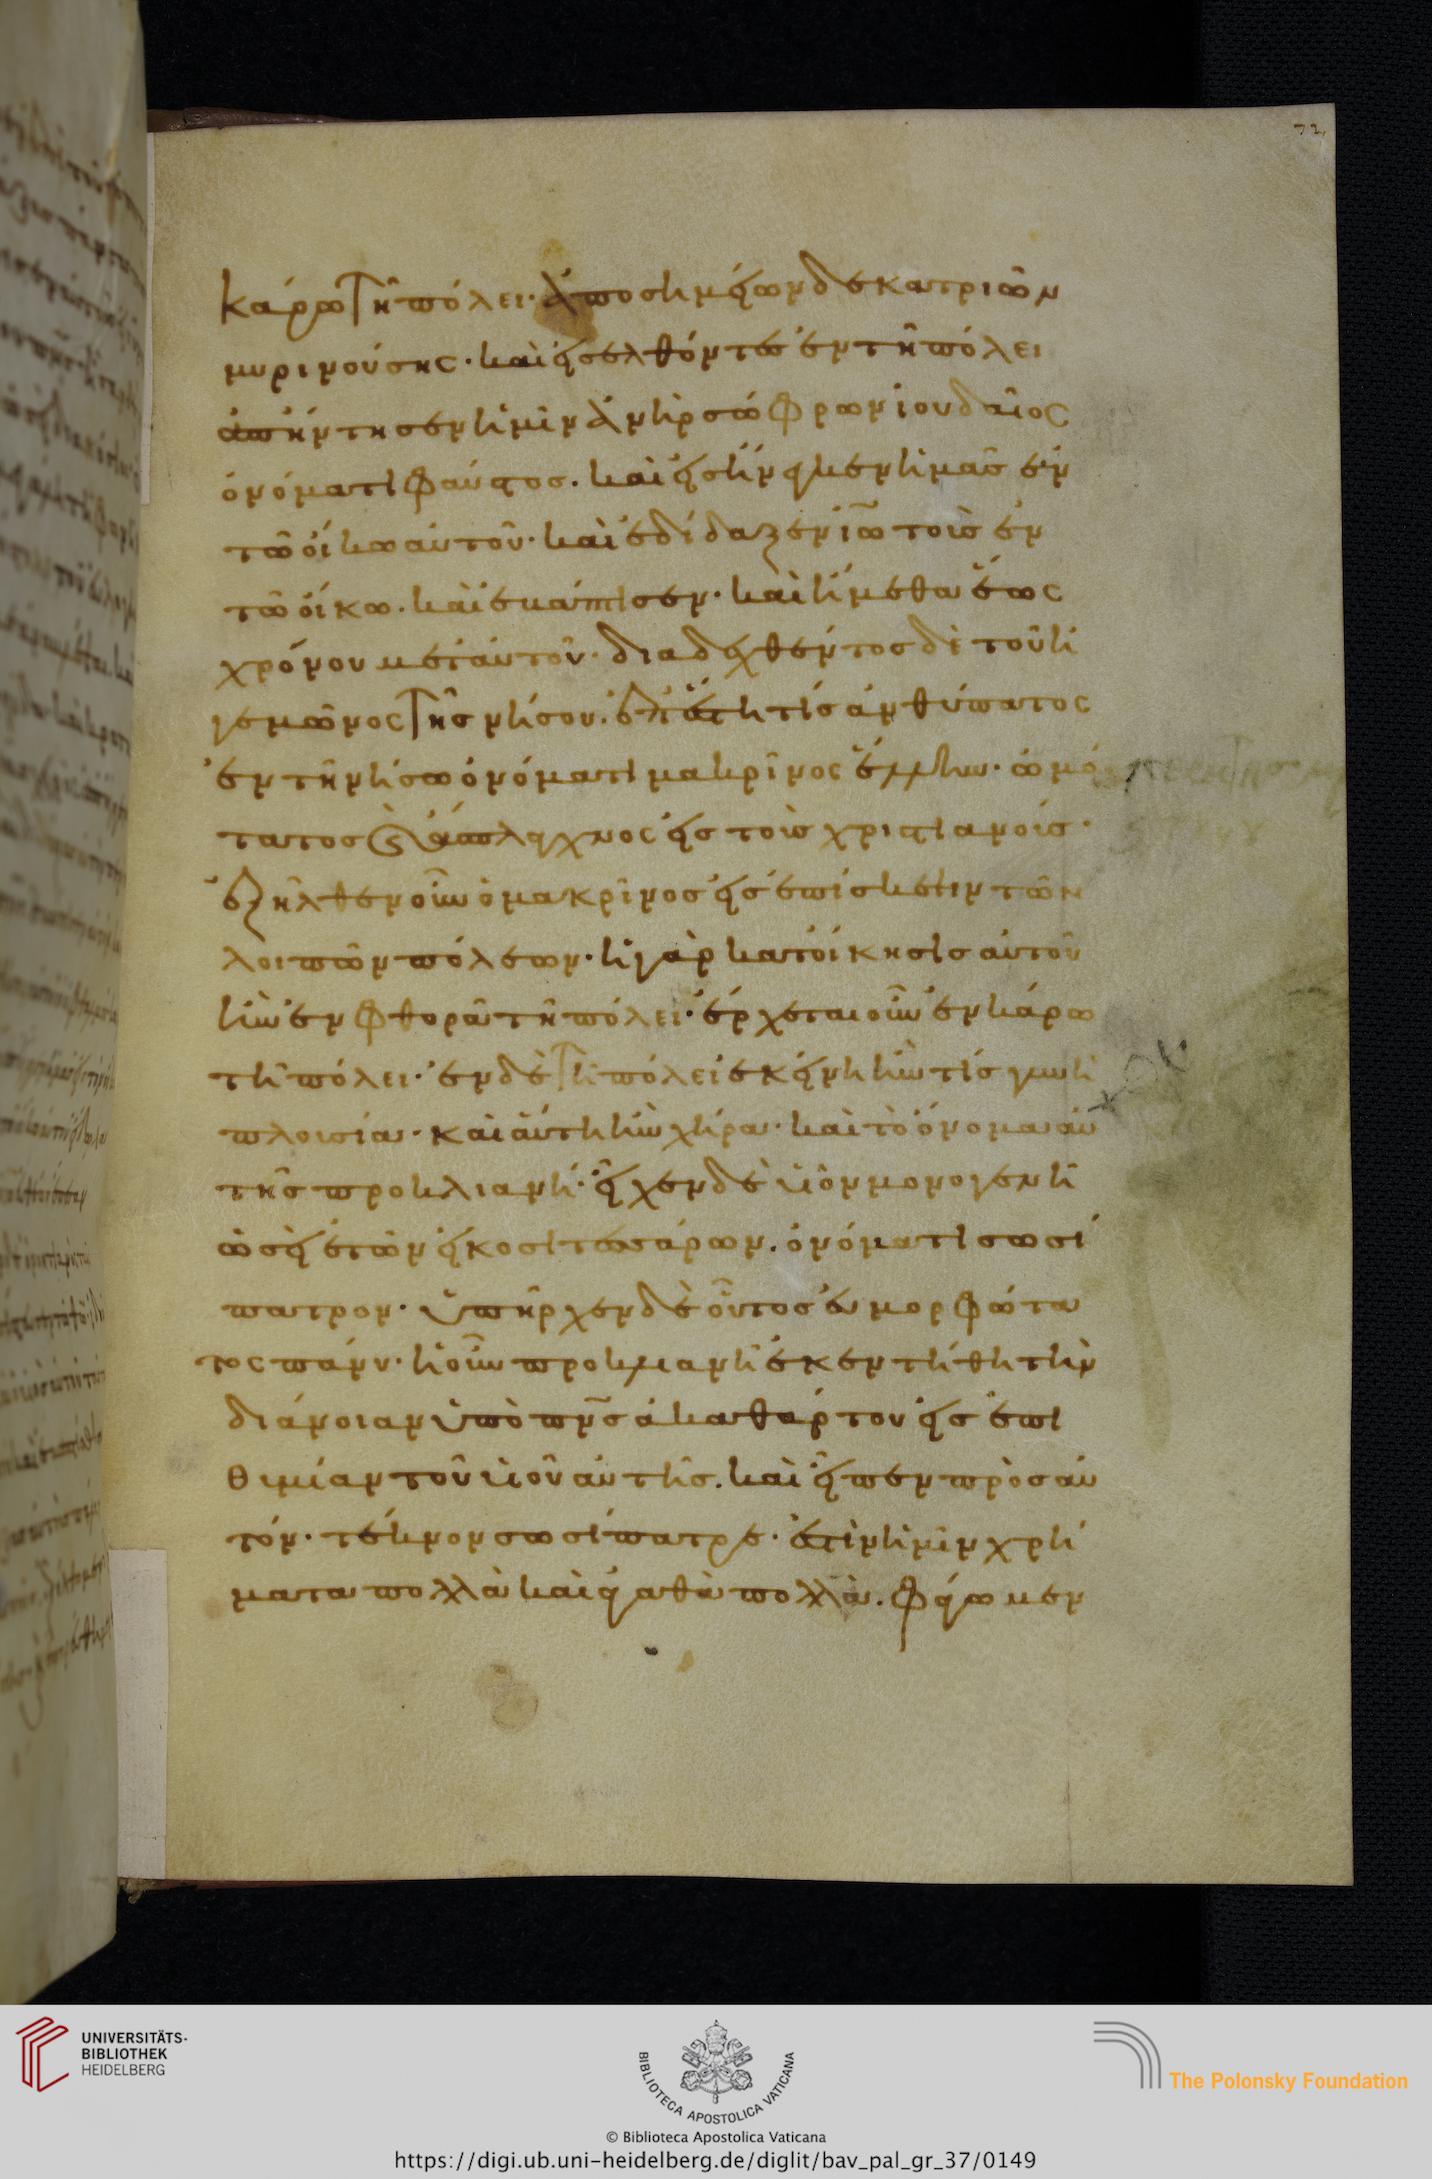 72
κάρω τῆ πόλει· ἀπο σημείων δεκατριῶν
μυρινούσης· καὶ εἰσελθόντες ἐν τῆ πόλει
ἀπήντησεν ἡμῖν ἀνὴρ σώφρων ἰουδαῖος
ὀνόματι φαύστος. καὶ εἰσήνεγκεν ἡμᾶς ἐν
τῶ οἴκω αὐτοῦ· καὶ ἐδίδαξεν ἰῶ τοὺς ἐν
τῶ οἴκω. καὶ ἐβάπτισεν· καὶ ἤμεθα ἕως
χρόνου μετ' αὐτοῦ· διαδεχθέντος δὲ τοῦ ἡ
γεμῶνος τῆς νήσου. ἐπέστη τίς ἀνθύπατος
ἐν τῆ νήσω ὀνόματι μακρῖνος ἕλλην. ὠμό
τατος καὶ ἄσπλαγχνος εἰς τοὺς χριστιανούς·
ἐξῆλθεν οὖν ὁ μακρῖνος εἰς ἐπίσκεψιν τῶν
λοιπῶν πόλεων· ἡ γὰρ κατοίκησις αὐτοῦ
ἦν ἐν φθορᾶ τῆ πόλει· ἔρχεται οὖν ἐν κάρω
τῆ πόλει· ἐν δὲ τῆ πόλει ἐκείνη ἦν τίς γυνὴ
πλουσία· καὶ αὕτη ἦν χήρα· καὶ τὸ ὄνομα αὐ
τῆς προκλιανή· εἶχεν δὲ υἱὸν μονογενῆ
ὡσεὶ ἐτῶν εἴκοσι τεσσάρων. ὀνόματι σωσί
πατρον· ὑπῆρχεν δὲ οὗτος εὐμορφώτα
τος πάνυ· ἡ οὖν προκλιανὴ ἐκεντήθη τὴν
διάνοιαν ὑπὸ πνς ἀκαθάρτου εἰς ἐπι
θυμίαν τοῦ υἱοῦ αὐτῆς. καὶ εἶπεν πρὸς αὐ
τόν· τέκνον σωσίπατρε· ἐστὶν ἡμῖν χρή
ματα πολλὰ καὶ ἀγαθὰ πολλὰ. φάγωμεν
UNIVERSITÄTS-
BIBLIOTHEK
HEIDELBERG
BIBLIOTECA APOSTOLICA VATICANA
The Polonsky Foundation
© Biblioteca Apostolica Vaticana
https://digi.ub.uni-heidelberg.de/diglit/bav_pal_gr_37/0149